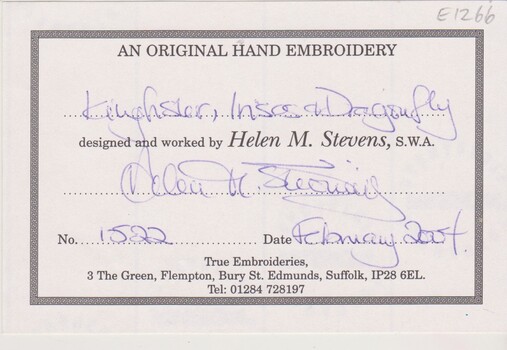 E1266
AN ORIGINAL HAND EMBROIDERY
Kingfisher, Irises & Dragonfly
designed and worked by Helen M. Stevens, S.W.A.
Helen M. Stevens
No. 1522 Date February 2004.
True Embroideries,
3 The Green, Flempton, Bury St. Edmunds, Suffolk, IP28 6EL.
Tel: 01284 728197